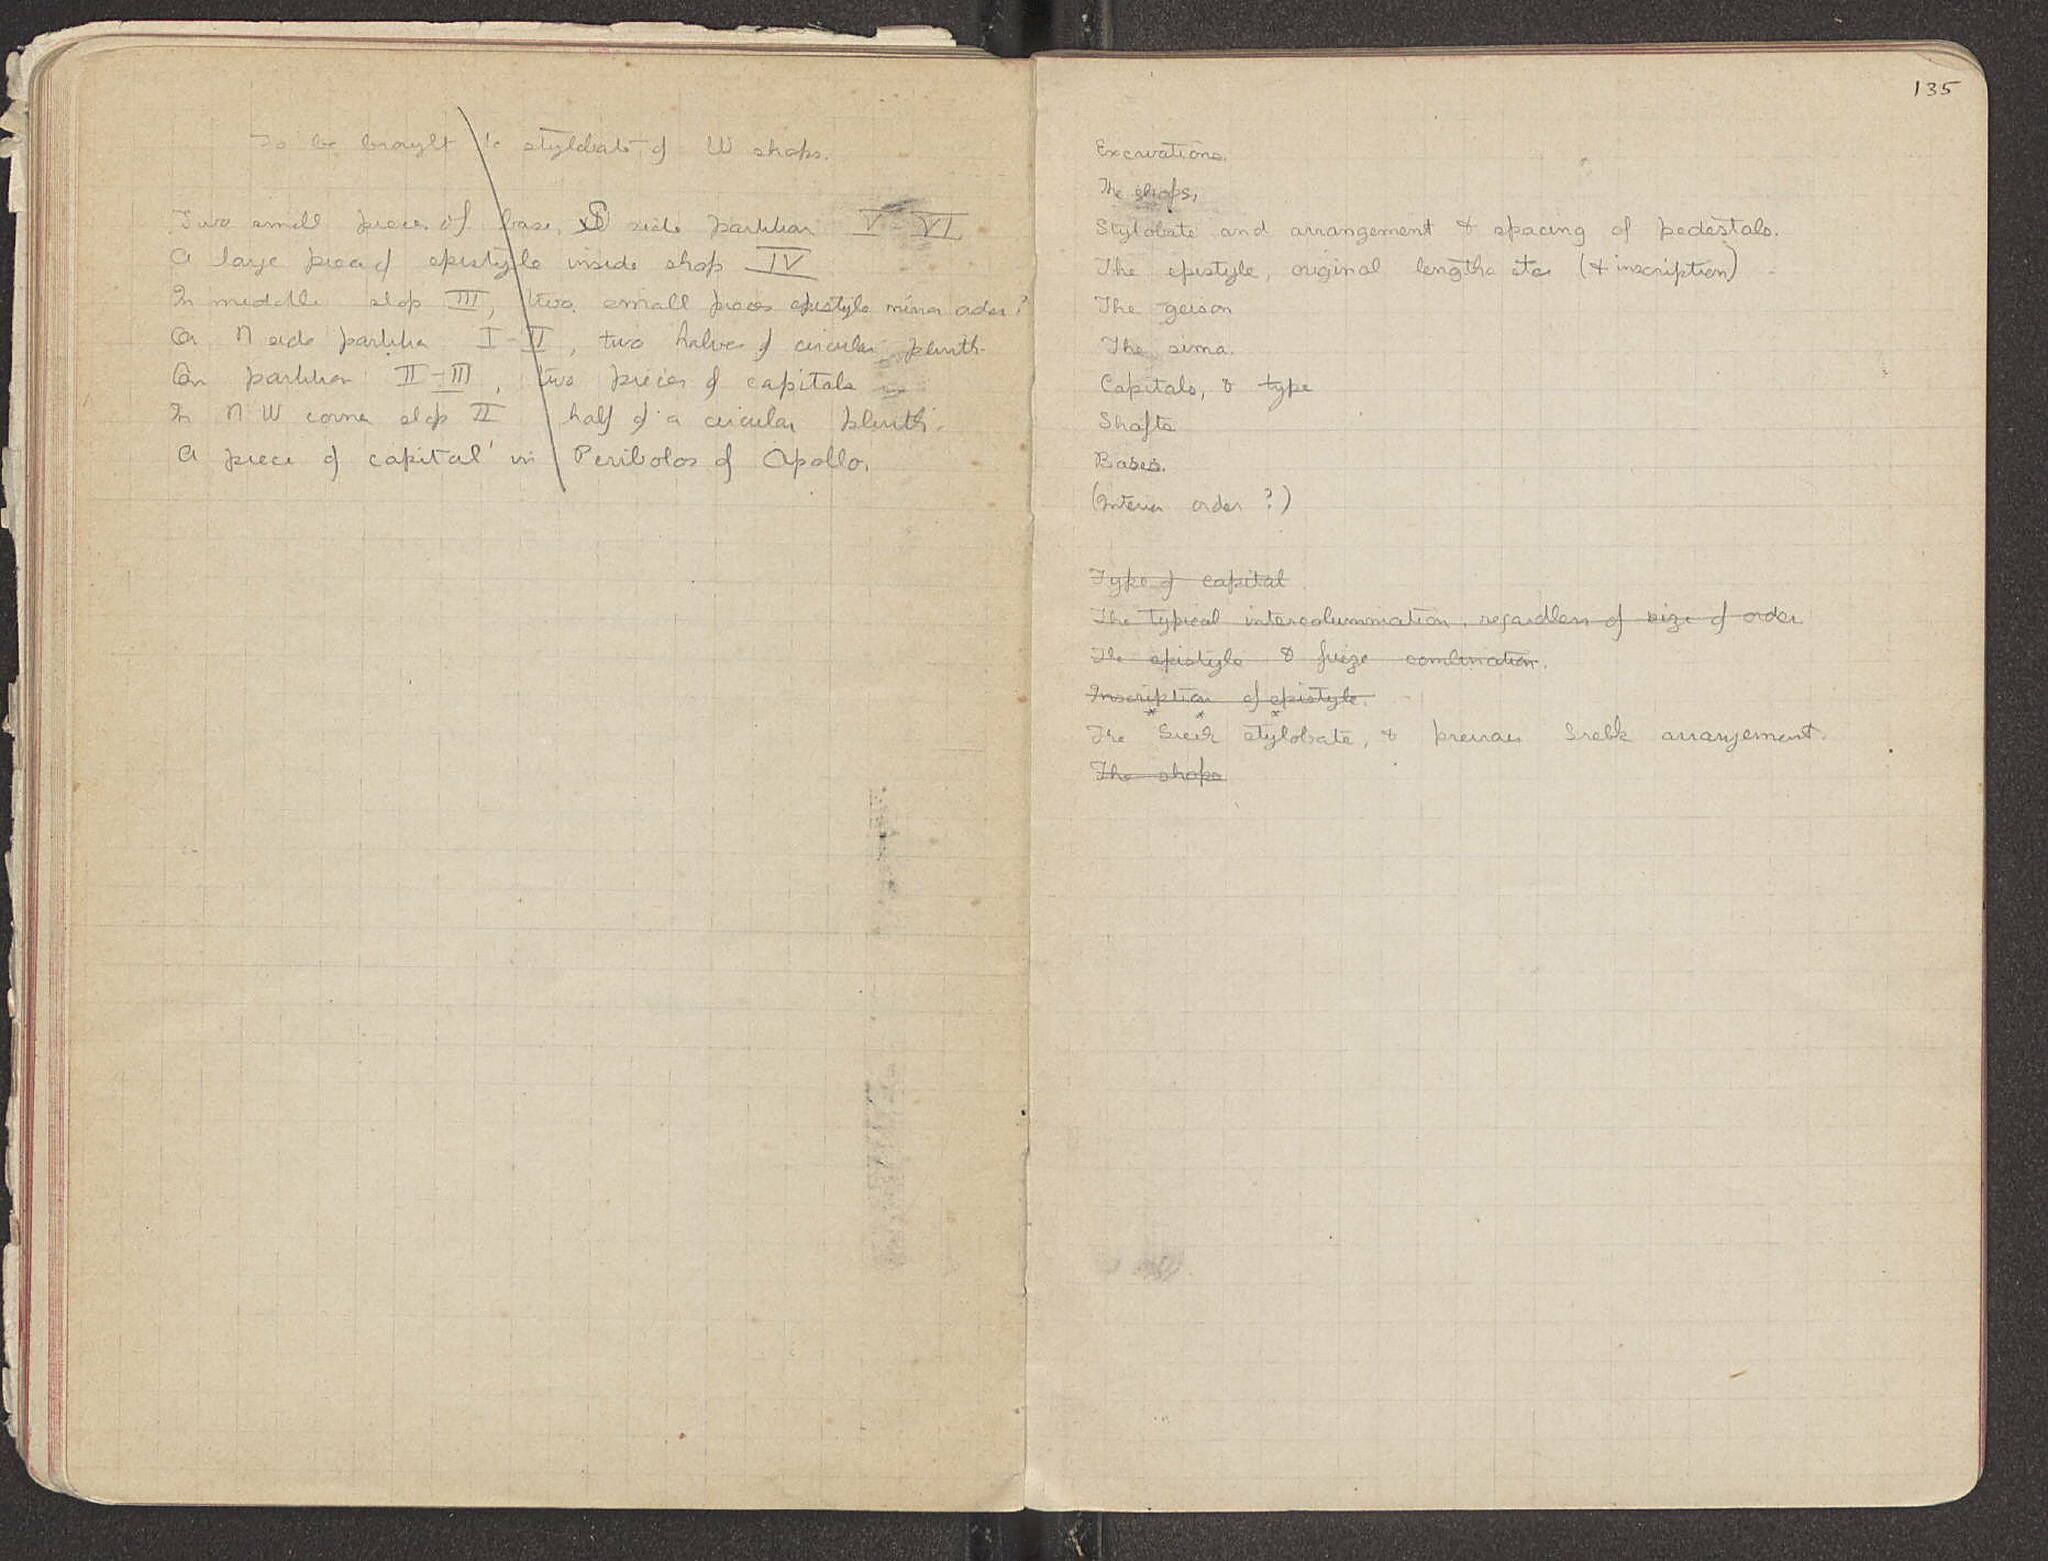 To be brought to stylobate of W shops.
Two small pieces of base, S side partition V-VI
A large piece of epistyle inside shop IV
In middle shop III, two small pieces epistyle minor order?
On N side partition I-II, two halves of circular plinth.
On partition II-III, two pieces of capitals
In NW corner shop II half of a circular plinth.
A piece of capital in Peribolos of Apollo.
135
Excavations.
The shops,
Stylobate and arrangement & spacing of pedestals.
The epistyle, original lengths etc (& inscription)
The geison
The sima.
Capitals, & type
Shafts
Bases.
(Interior order ?)
Type of capital
The typical intercolumniation, regardless of size of order
The epistyle & frieze combination.
Inscription of epistyle.
The Greek stylobate, & previous Greek arrangement.
The shops